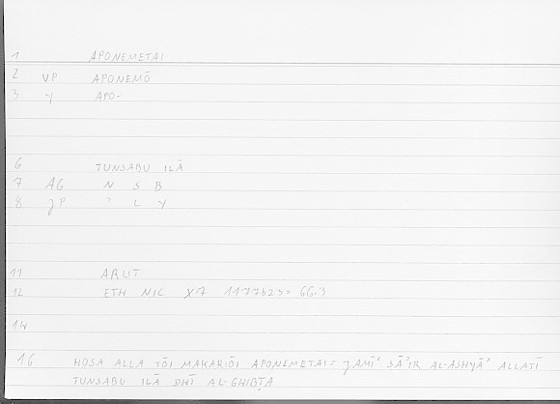 1 APONEMETAI
2 VP APONEMŌ
3 Y APO-
6 TUNSABU ILĀ
7 AG N S B
8 JP ʾ L Y
11 ARUT
12 ETH NIC X7 1177b25= 66.3
14
16 HOSA ALLA TŌI MAKARIŌI APONEMETAI= JAMĪʿ SĀʾIR AL-ASHYĀʾ ALLATĪ
TUNSABU ILĀ DHĪ AL-GHIBṬA